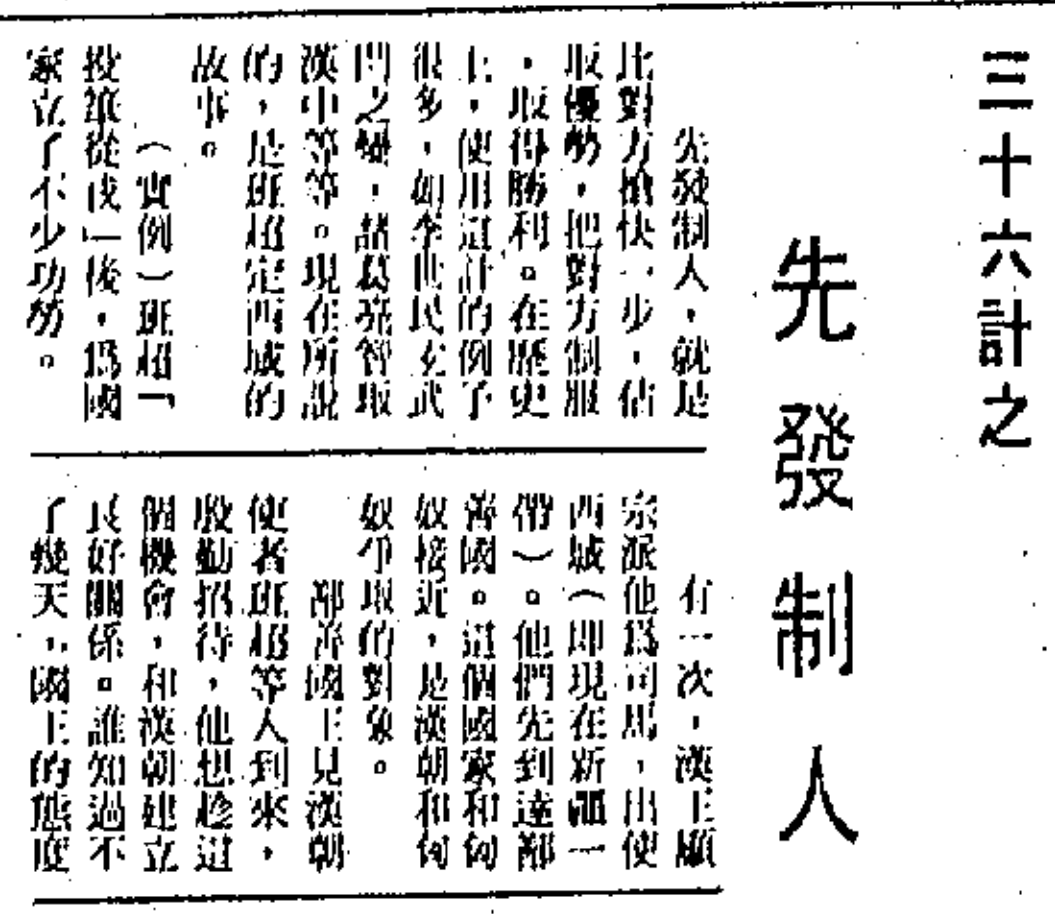 三十六計之
先發制人
先發制人，就是
比對方搶快一步，佔
取優勢，把對方制服
，取得勝利。在歷史
上，使用這計的例子
很多，如李世民玄武
門之變，諸葛亮智取
漢中等等。現在所說
的，是班超定西域的
故事。
（實例）班超「
投筆從戎」後，爲國
家立了不少功勞。
有一次，漢王顯
宗派他爲司馬，出使
西域（即現在新疆一
帶）。他們先到達鄯
善國。這個國家和匈
奴接近，是漢朝和匈
奴爭取的對象。
鄯善國王見漢朝
使者班超等人到來，
殷勤招待，他想趁這
個機會，和漢朝建立
良好關係。誰知過不
了幾天，國王的態度